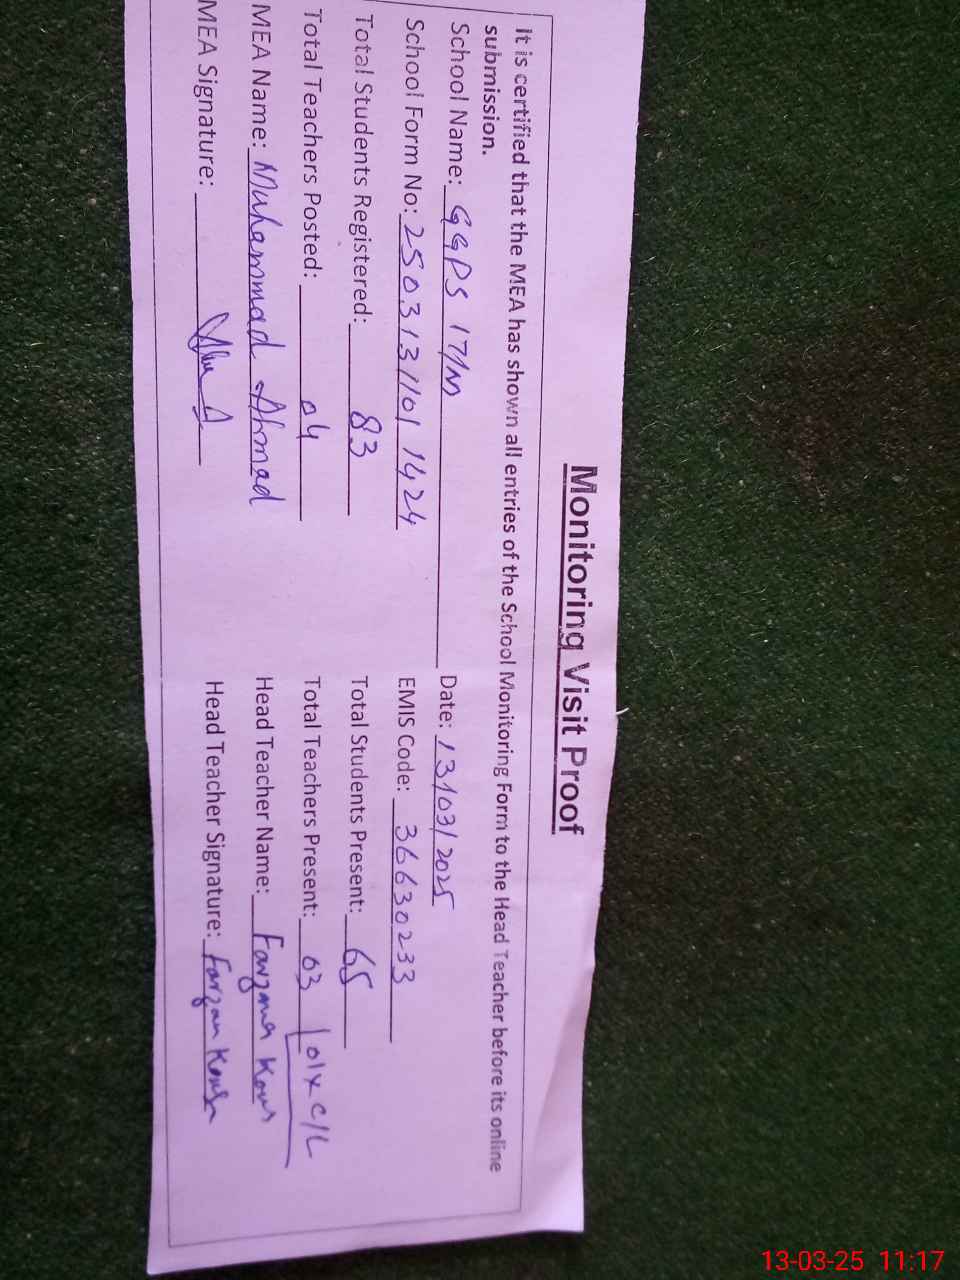 Monitoring Visit Proof
It is certified that the MEA has shown all entries of the School Monitoring Form to the Head Teacher before its online
submission.
School Name: GGPS 17/M Date: 13/03/2025
School Form No: 25031311011424 EMIS Code: 36630233
Total Students Registered: 83 Total Students Present: 65
Total Teachers Posted: 04 Total Teachers Present: 03 | 01x C/L
MEA Name: Muhammad Ahmad Head Teacher Name: Farzana
MEA Signature: Head Teacher Signature: Farzan
13-03-25 11:17